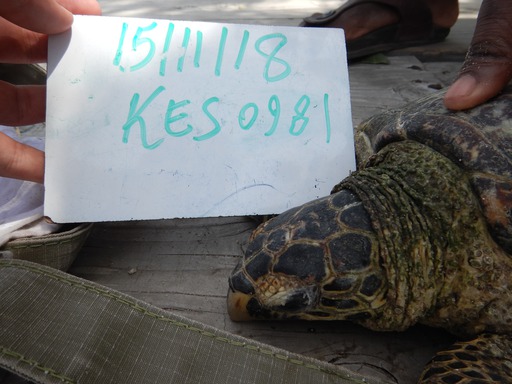 15/11/18
KES 0981